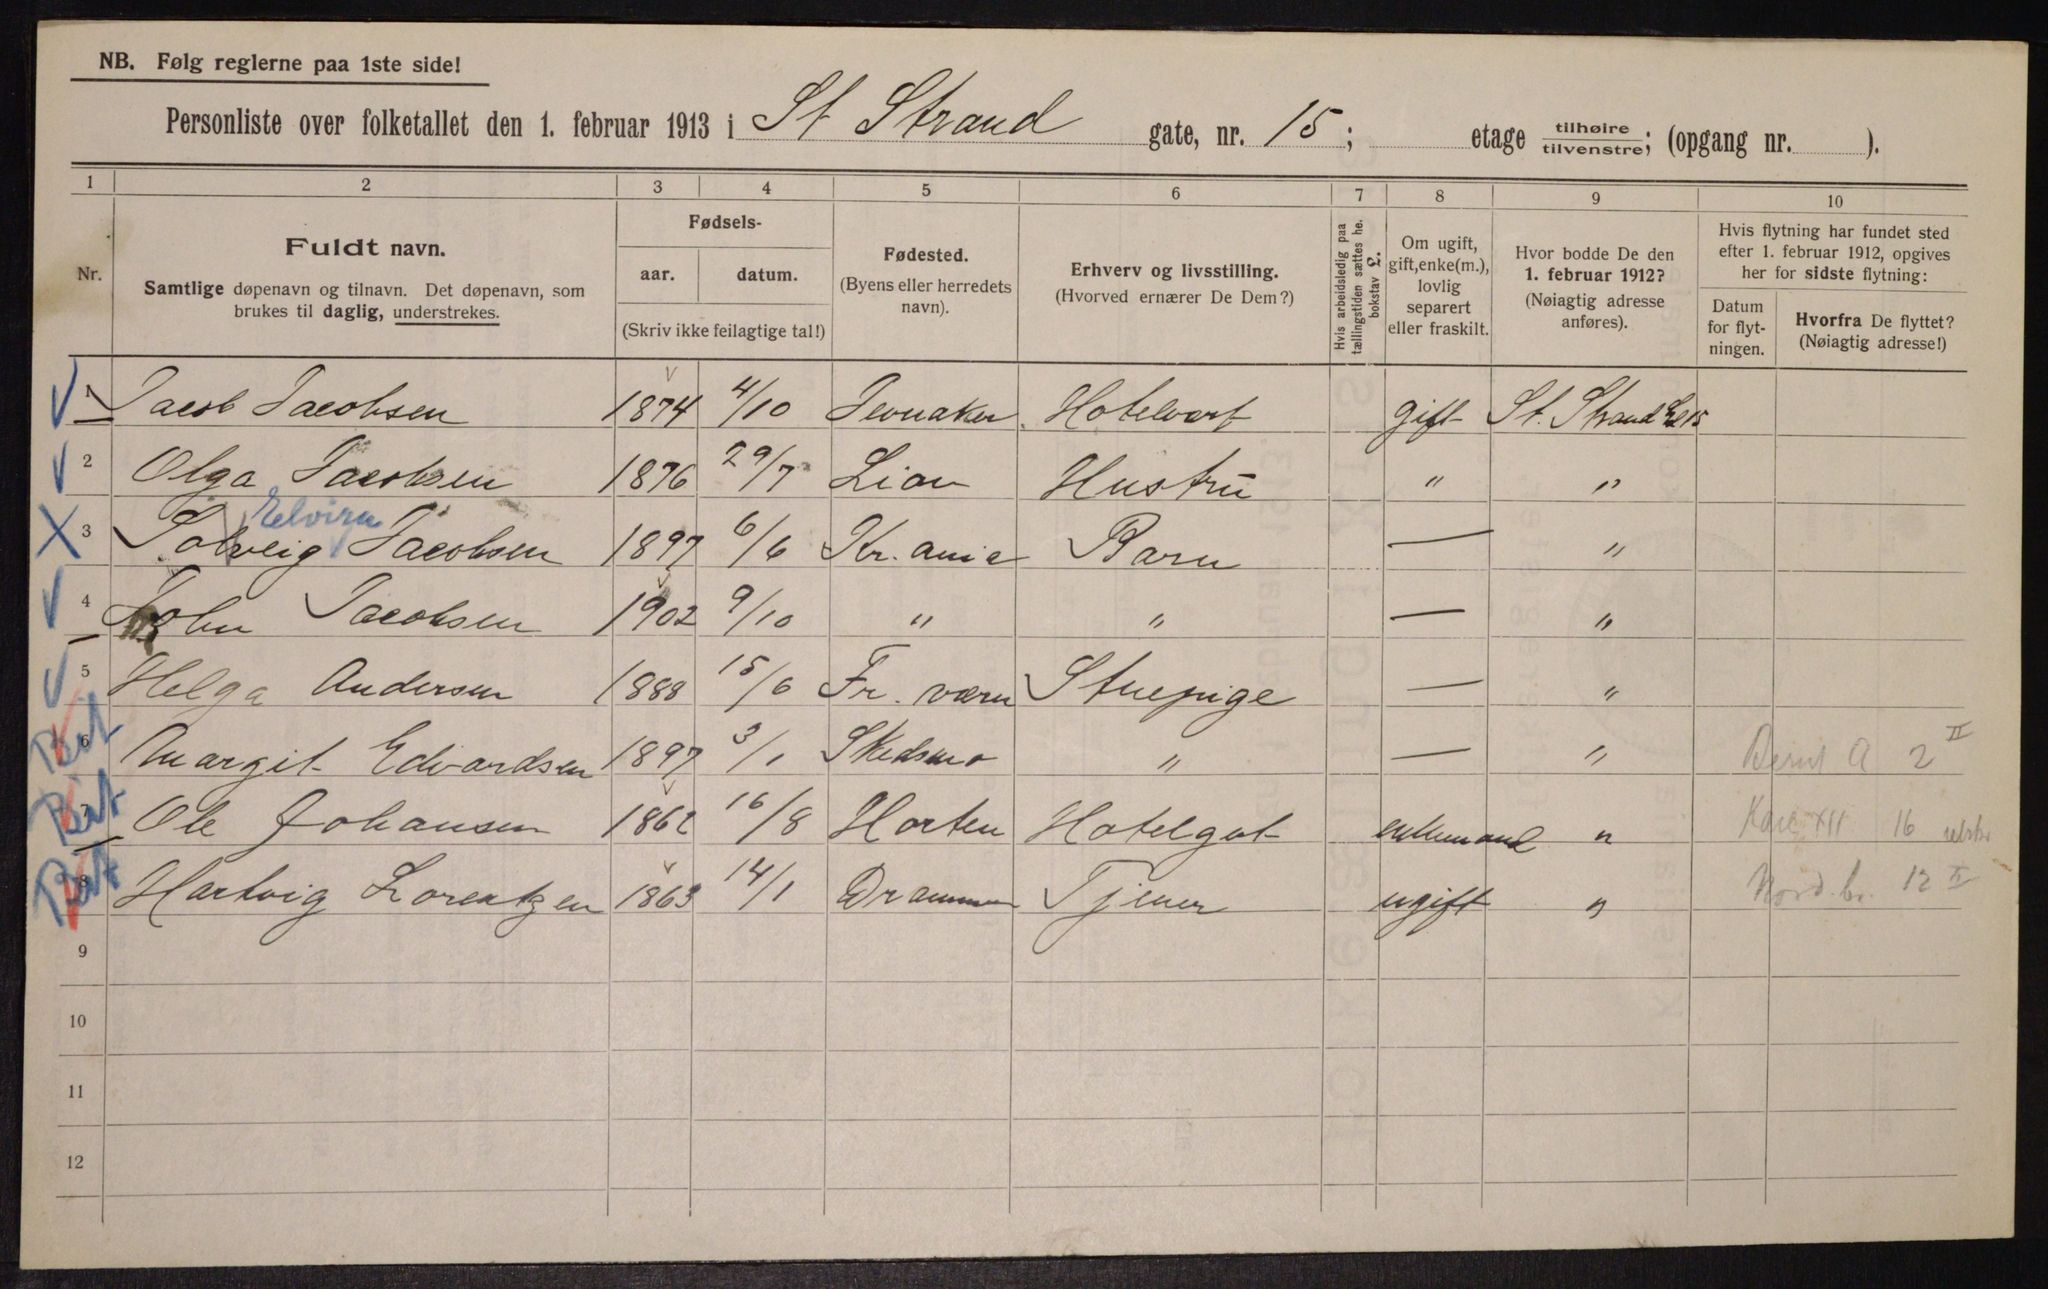 NB. Følg reglerne paa 1ste side!
Personliste over folketallet den 1. februar 1913 i St Strand gate, nr. 15; etage tilhøire tilvenstre; (opgang nr. ).
1 2 3 4 5 6 7 8 9 10
Nr.
Fuldt navn.
Samtlige døpenavn og tilnavn. Det døpenavn, som
brukes til daglig, understrekes.
Fødsels-
aar. datum.
(Skriv ikke feilagtige tal!)
Fødested.
(Byens eller herredets
navn).
Erhverv og livsstilling.
(Hvorved ernærer De Dem?)
Hvis arbeidsledig paa
tællingstiden sættes he.
bokstav L.
Om ugift,
gift, enke(m.),
lovlig
separert
eller fraskilt.
Hvor bodde De den
1. februar 1912?
(Nøiagtig adresse
anføres).
Hvis flytning har fundet sted
efter 1. februar 1912, opgives
her for sidste flytning:
Datum
for flyt-
ningen.
Hvorfra De flyttet?
(Nøiagtig adresse!)
1 Jacob Jacobsen 1874 4/10 Jevnaker Hotelvert gift St. Strand 15
2 Olga Jacobsen 1876 29/7 Lier Hustru " "
Elvira
3 Solveig Jacobsen 1897 6/6 Kr.ania Barn — "
4 John Jacobsen 1902 9/10 " " — "
5 Helga Andersen 1888 15/6 Fr. værn Stuepige — "
6 Margit Edvardsen 1897 3/1 Skedsmo " — " Bernt A 2 II
7 Ole Johansen 1862 16/8 Horten Hotelgut enkemand " Karl XII 16
8 Hartvig Lorentzen 1863 14/1 Drammen Tjener ugift " Nord. br. 12 II
9
10
11
12